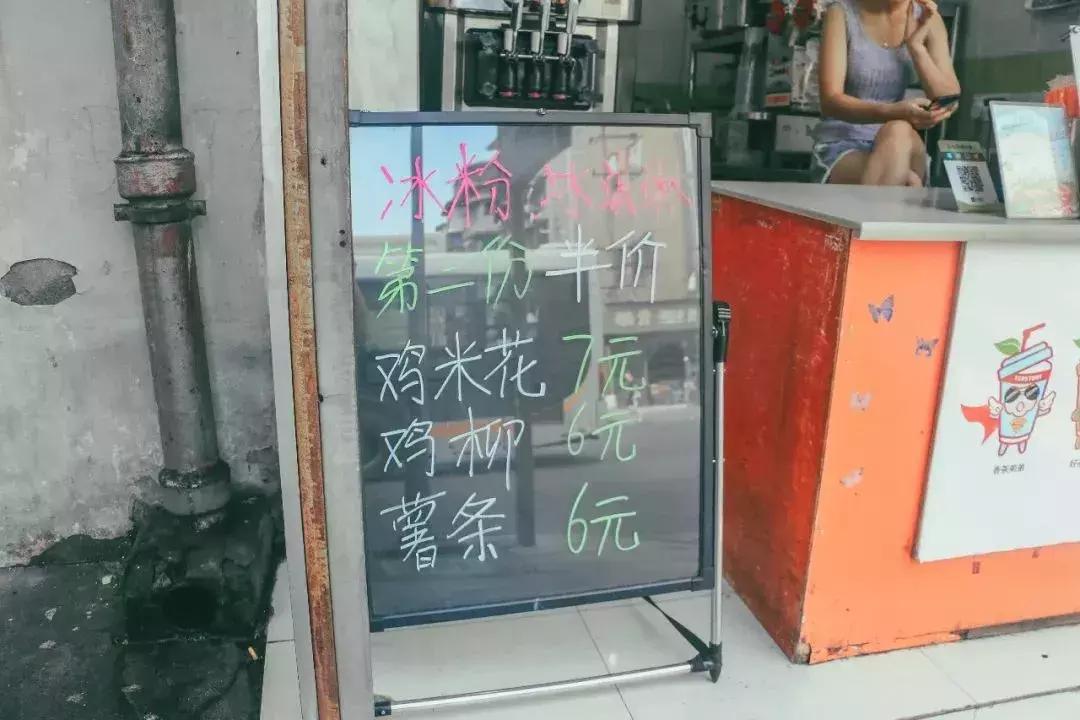 冰粉 冰
第二份半价
鸡米花 7元
鸡柳 6元
薯条 6元